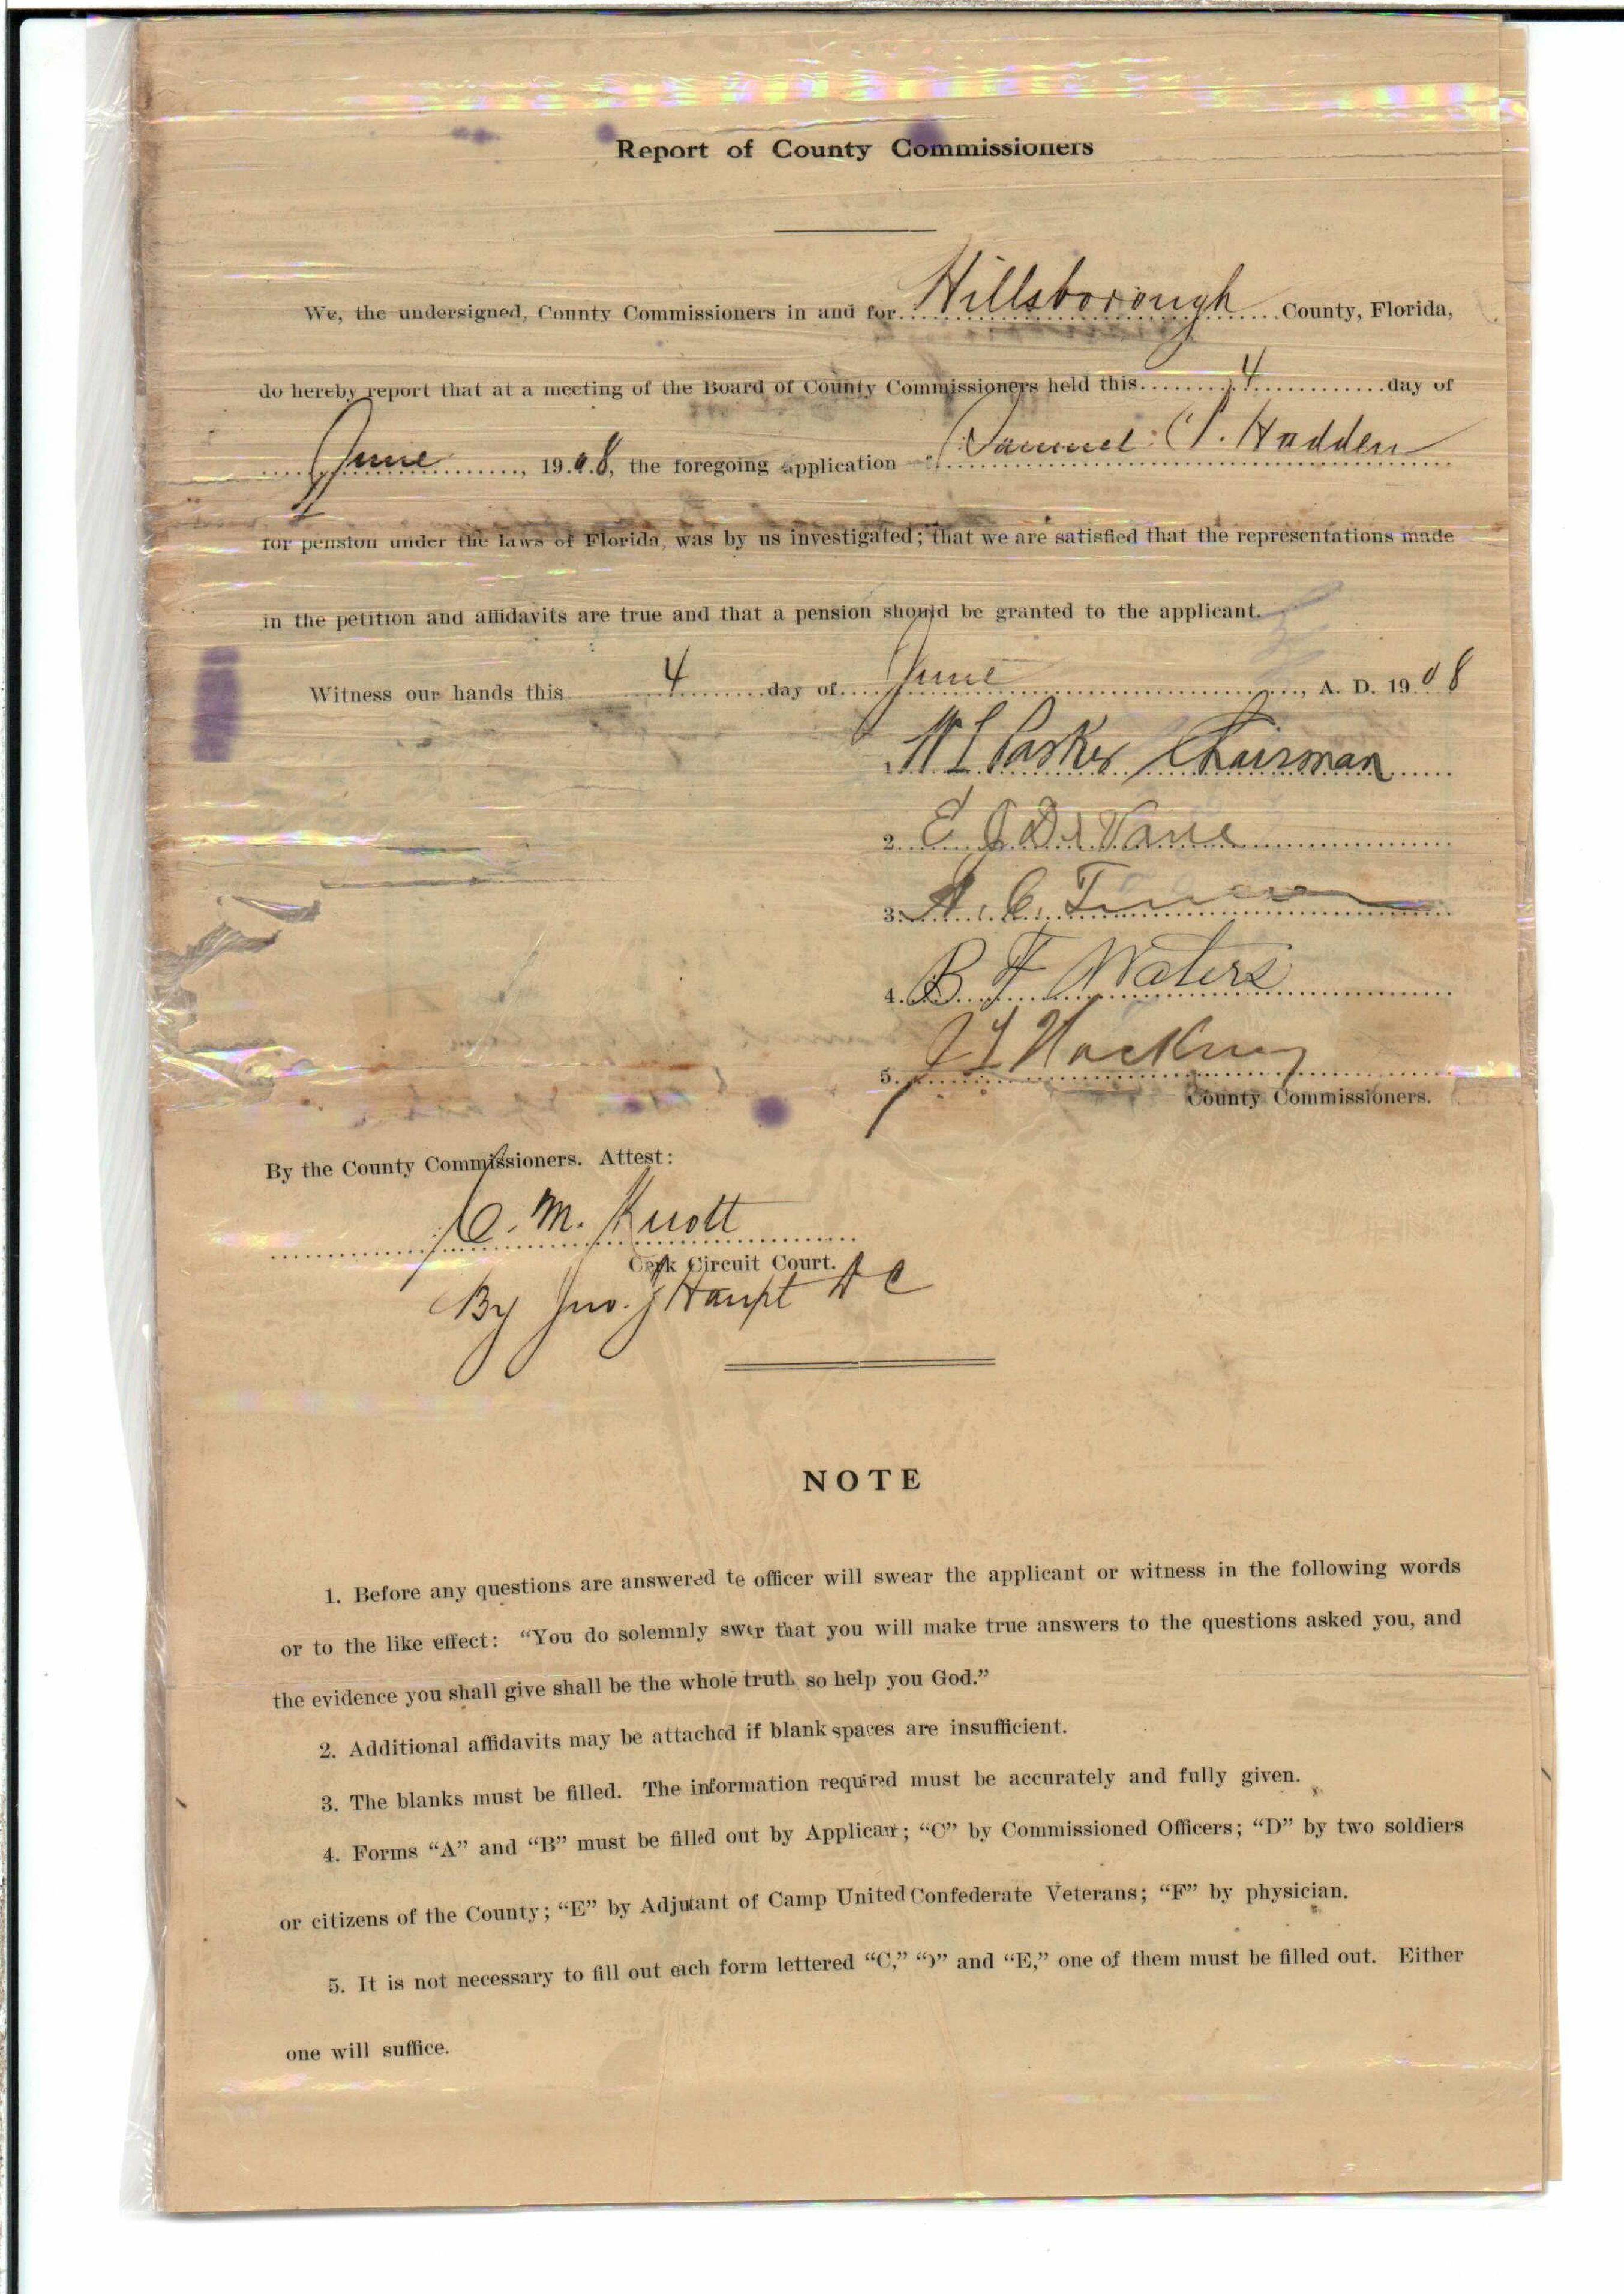 Report of County Commissioners
We, the undersigned, County Commissioners in and for Hillsborough County, Florida,
do hereby report that at a meeting of the Board of County Commissioners held this 4 day of
June, 1908, the foregoing application Samuel P. Hadden
for pension under the laws of Florida, was by us investigated; that we are satisfied that the representations made
in the petition and affidavits are true and that a pension should be granted to the applicant.
Witness our hands this 4 day of June, A. D. 1908
W L Parker Chairman
2. E J DeVane
3. A. C.
4. B F Waters
5. Hackney
County Commissioners.
By the County Commissioners. Attest:
C. M. Knott
Clerk Circuit Court.
By Jno. J Haupt D C
NOTE
1. Before any questions are answered te officer will swear the applicant or witness in the following words
or to the like effect: “You do solemnly swer that you will make true answers to the questions asked you, and
the evidence you shall give shall be the whole truth so help you God.”
2. Additional affidavits may be attached if blank spaces are insufficient.
3. The blanks must be filled. The information required must be accurately and fully given.
4. Forms “A” and “B” must be filled out by Applicant; “C” by Commissioned Officers; “D” by two soldiers
or citizens of the County; “E” by Adjutant of Camp United Confederate Veterans; “F” by physician.
5. It is not necessary to fill out each form lettered “C,” “D” and “E,” one of them must be filled out. Either
one will suffice.